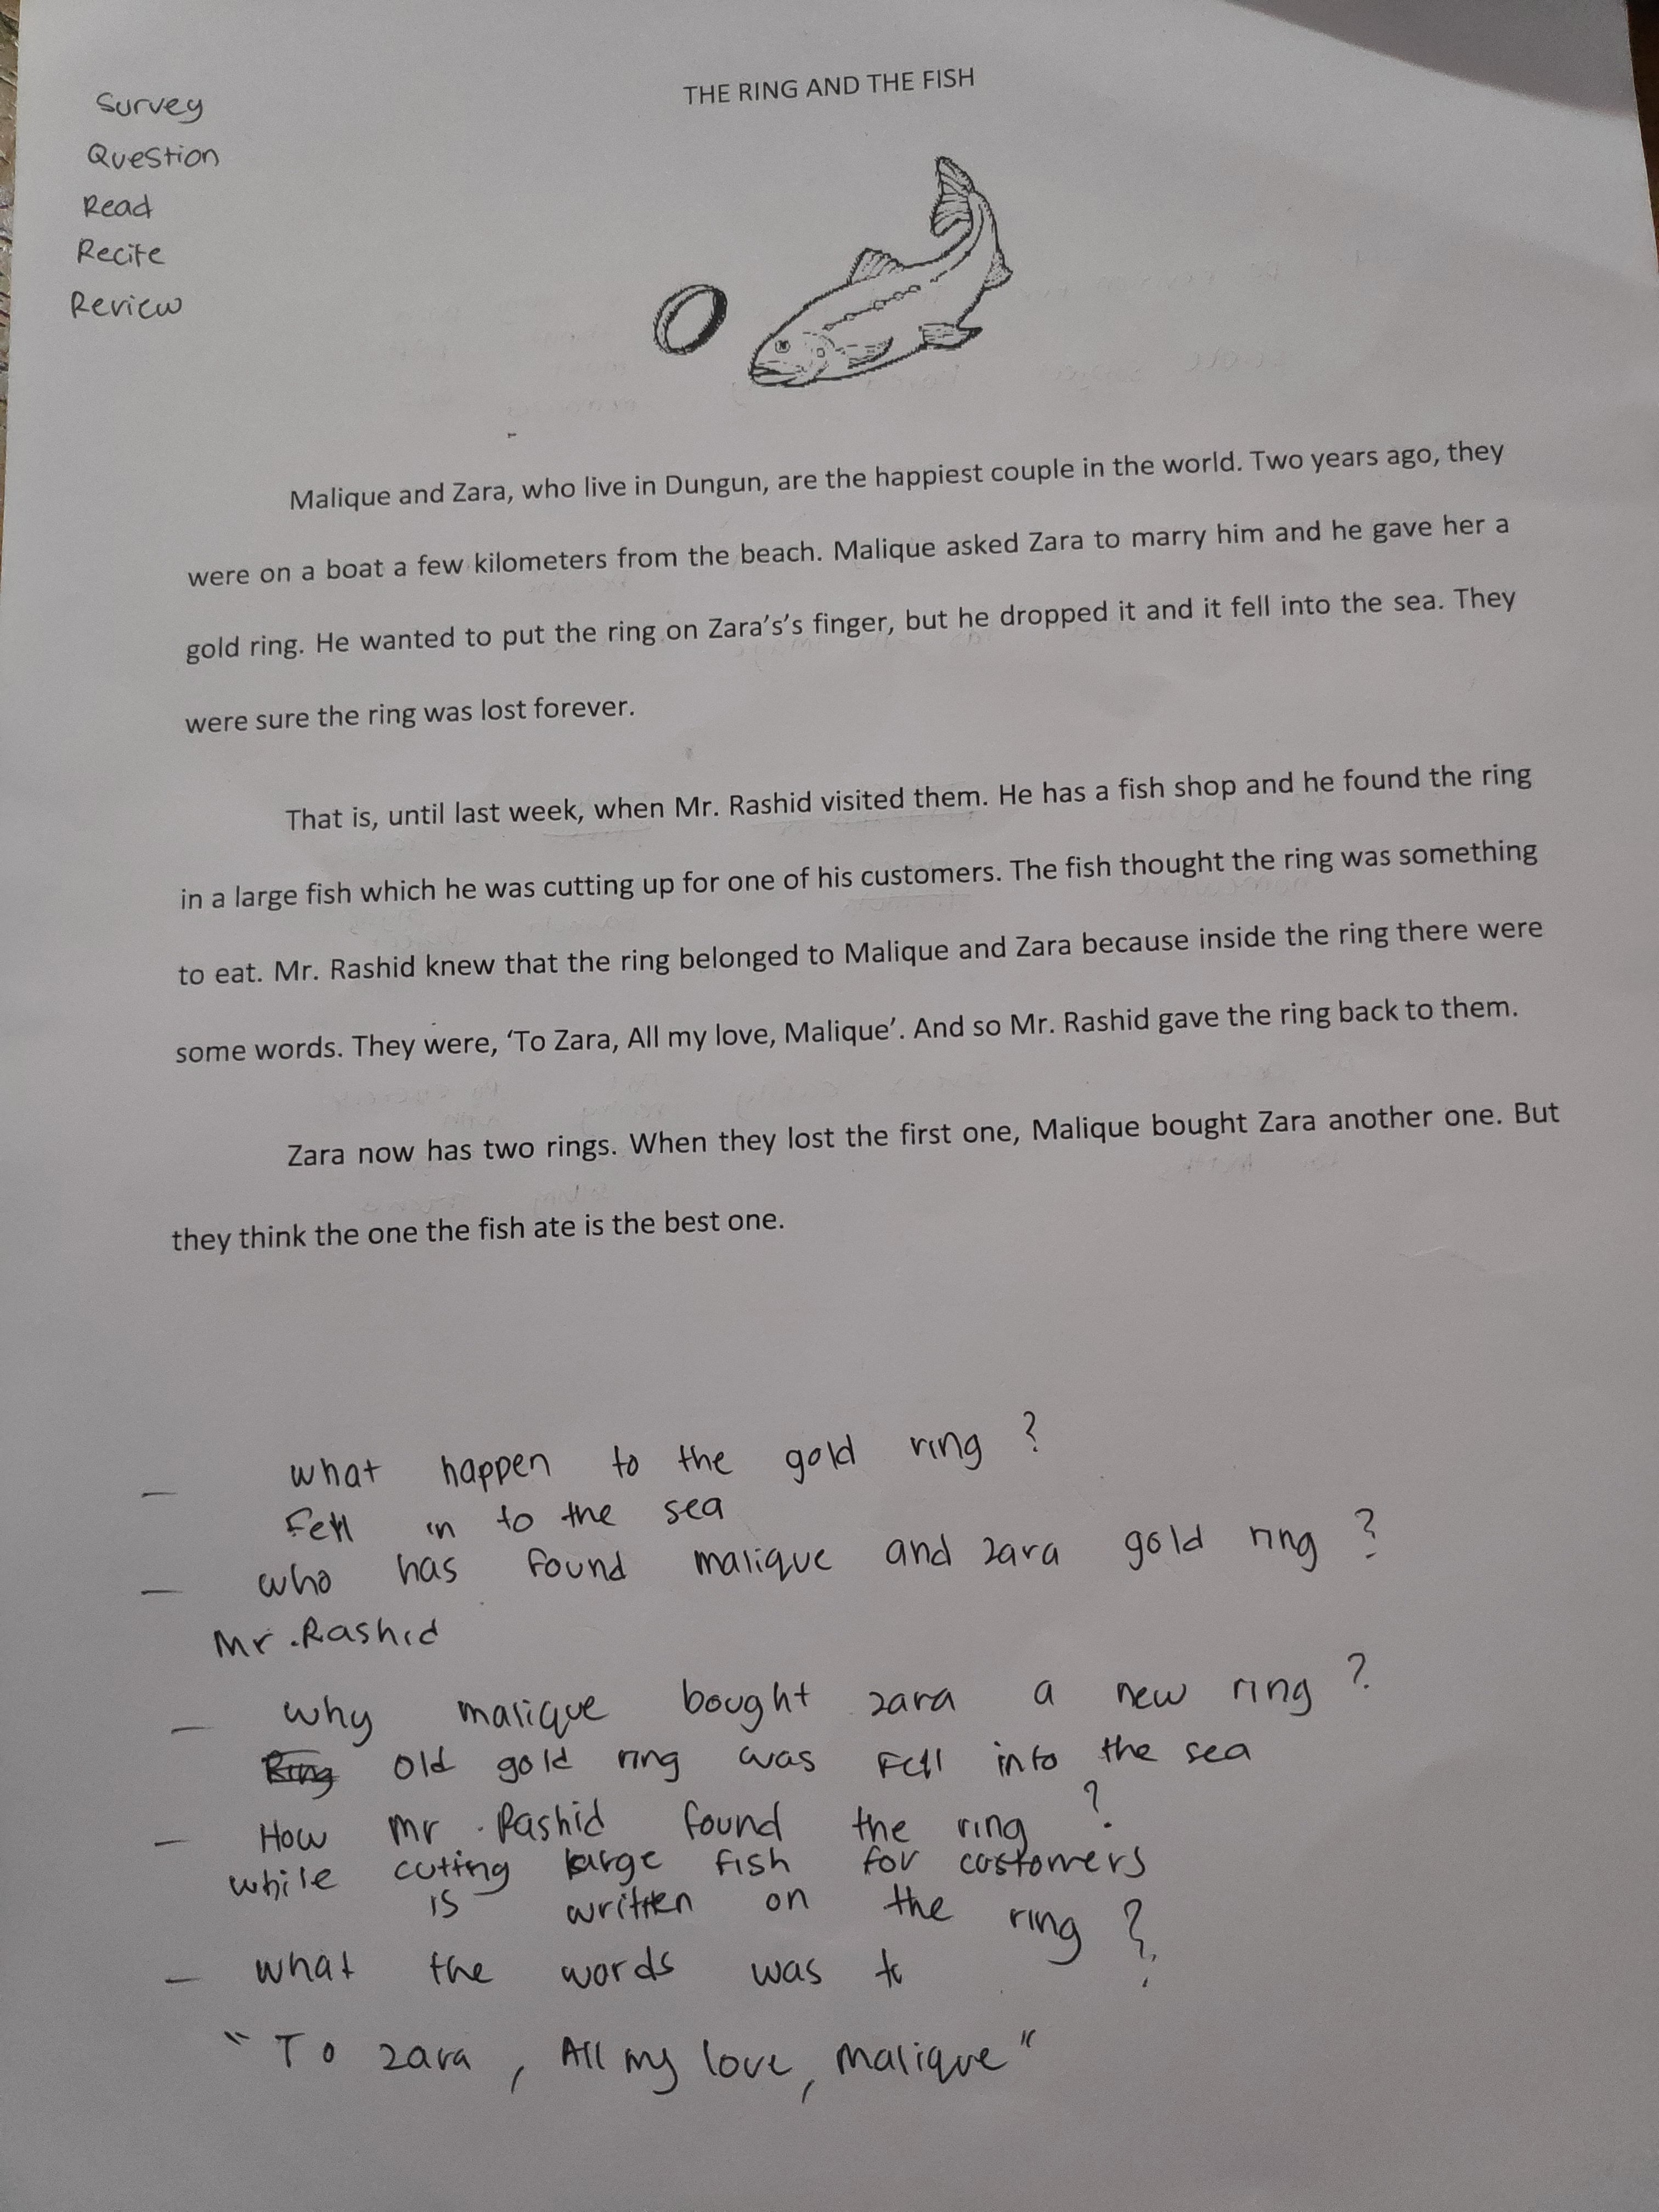 Survey
Question
Read
Recite
Review
THE RING AND THE FISH
Malique and Zara, who live in Dungun, are the happiest couple in the world. Two years ago, they
were on a boat a few kilometers from the beach. Malique asked Zara to marry him and he gave her a
gold ring. He wanted to put the ring on Zara's's finger, but he dropped it and it fell into the sea. They
were sure the ring was lost forever.
That is, until last week, when Mr. Rashid visited them. He has a fish shop and he found the ring
in a large fish which he was cutting up for one of his customers. The fish thought the ring was something
to eat. Mr. Rashid knew that the ring belonged to Malique and Zara because inside the ring there were
some words. They were, ‘To Zara, All my love, Malique’. And so Mr. Rashid gave the ring back to them.
Zara now has two rings. When they lost the first one, Malique bought Zara another one. But
they think the one the fish ate is the best one.
– what happen to the gold ring ?
Fell in to the sea
– who has found malique and zara gold ring ?
Mr .Rashid
– why malique bought zara a new ring ?
Ring old gold ring was Fell into the sea
– How mr . Rashid found the ring ?
while cuting large fish for customers
is written on the ring ?
– what the words was to
" To zara , All my love, malique "